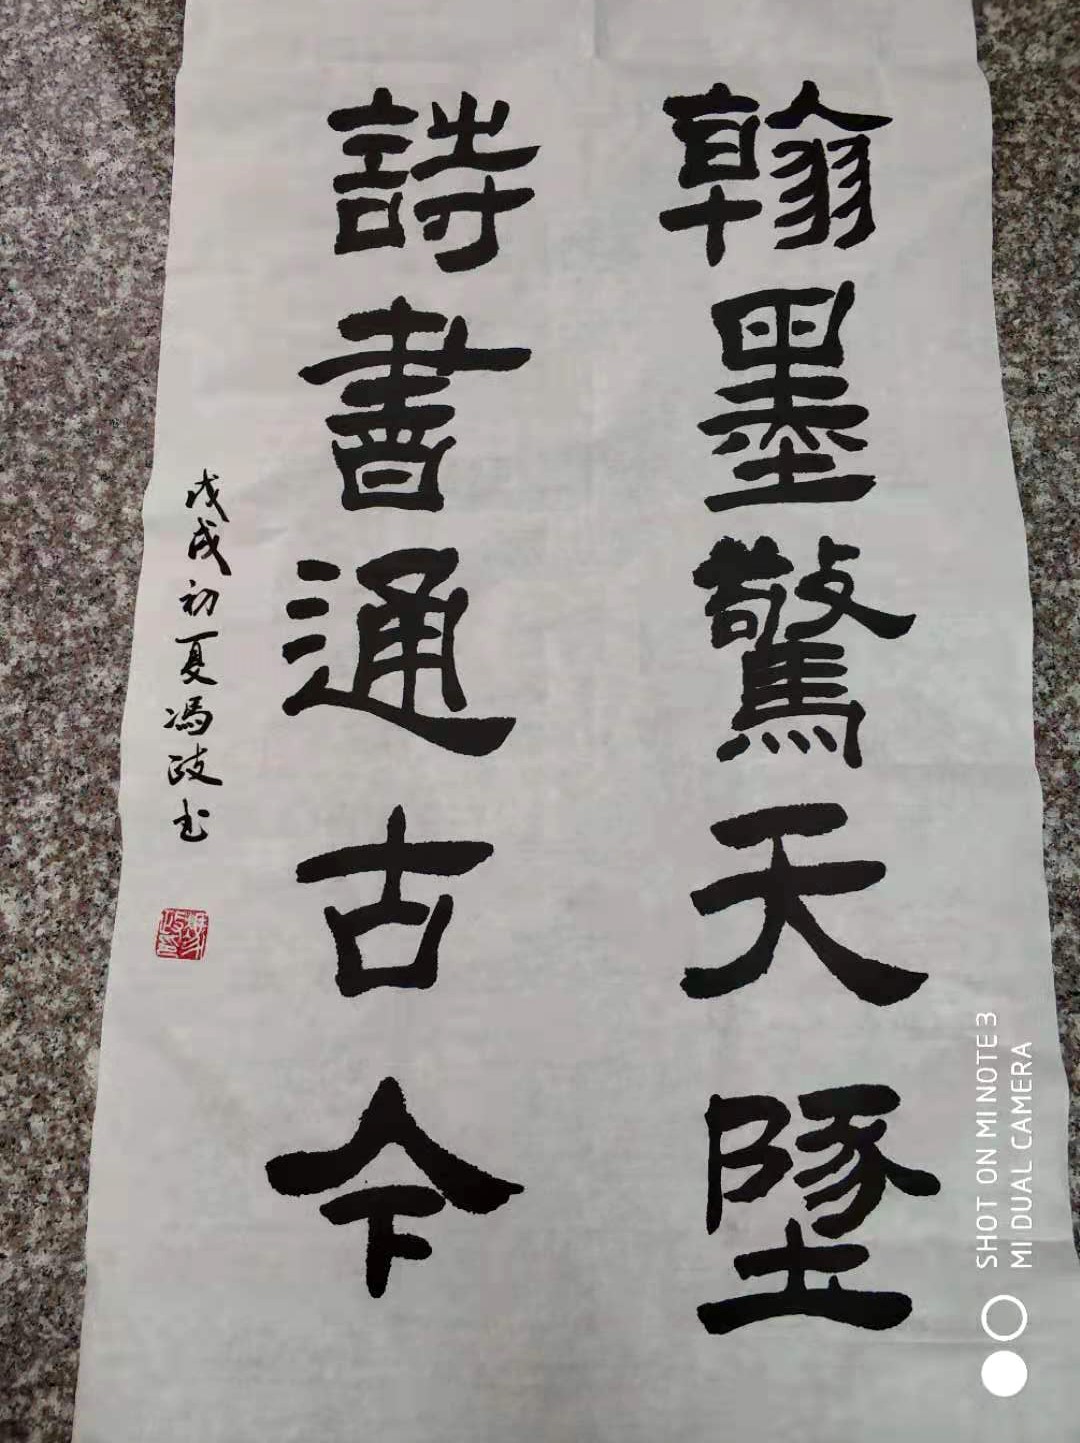 翰墨驚天墜
詩書通古今
戊戌初夏馮歧书
SHOT ON MI NOTE 3
MI DUAL CAMERA